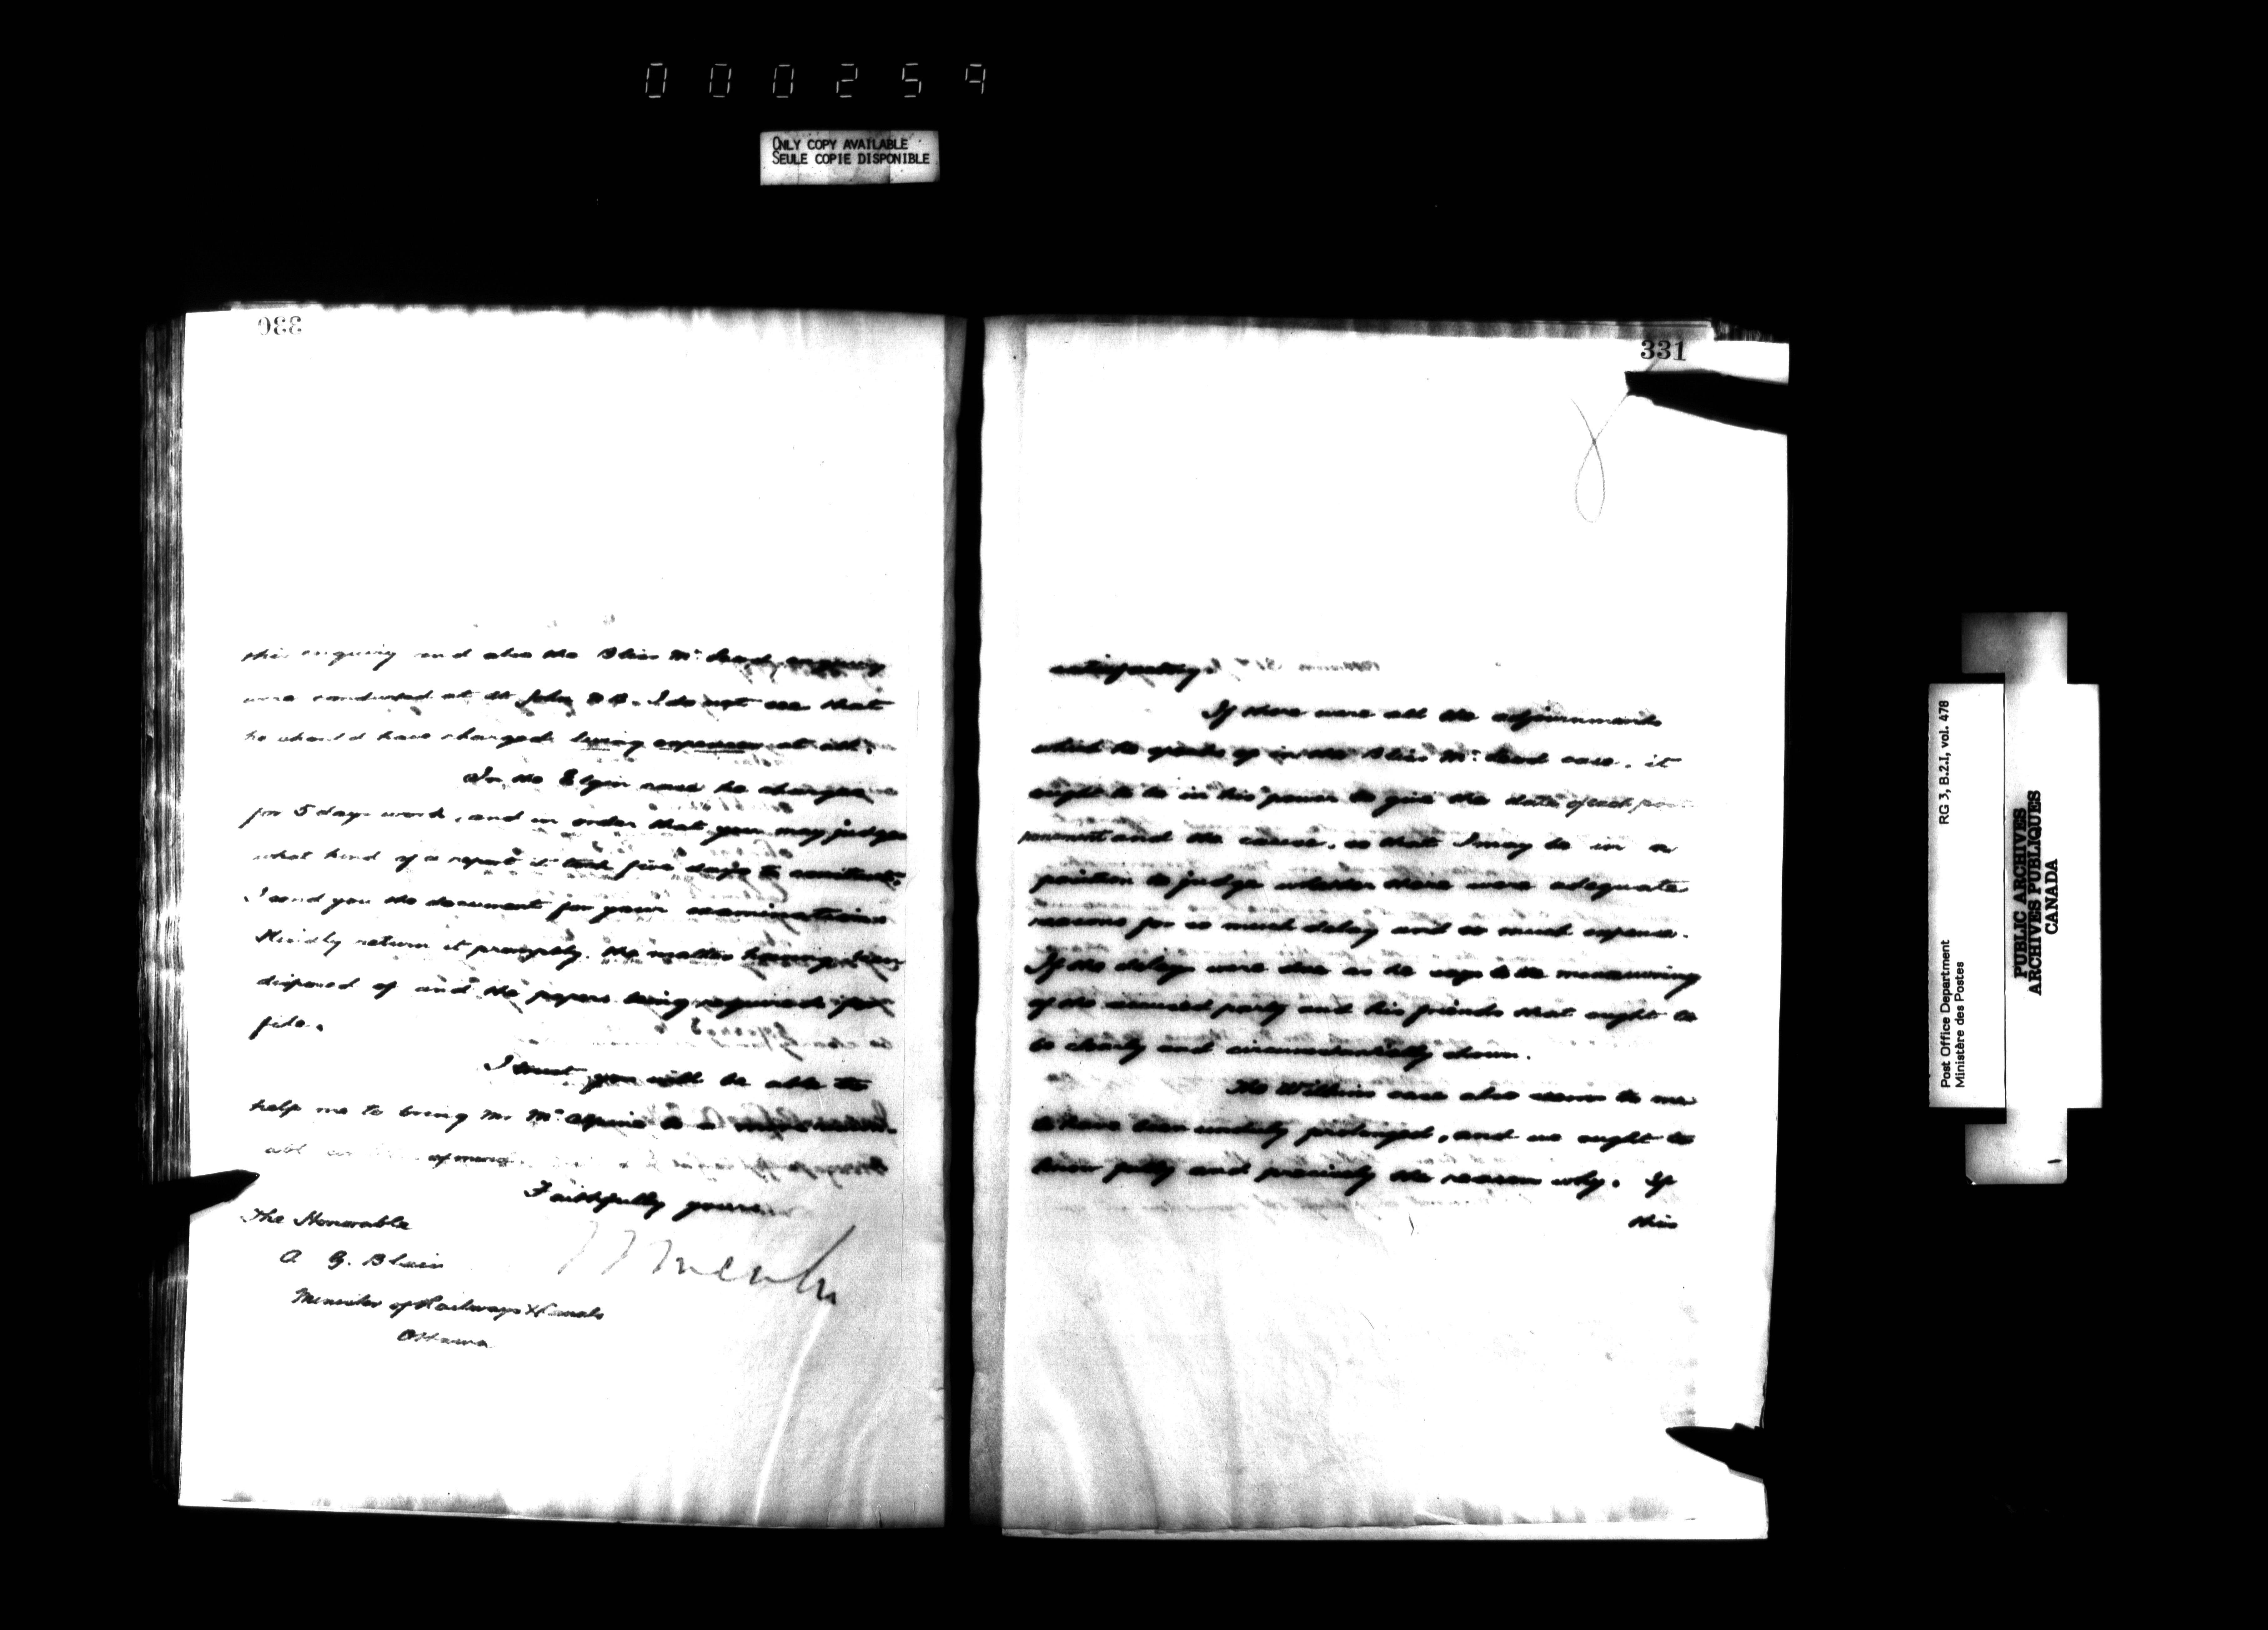 000259
ONLY COPY AVAILABLE
SEULE COPIE DISPONIBLE
330
this enquiry and also the Bliss McLeod enquiry
were conducted at St John N B. I do not see that
he should have charged living expenses at all.
In the Elgin case he charges
for 5 days work, and in order that you may judge
what kind of a report it took five days to
I send you the document for your examination
Kindly return it promptly. the matter having been
disposed of and the papers being required for
file.
I trust you will be able to
help me to bring Mr McAlpine to a more
Faithfully yours
The Honorable
A G. Blair
Minister of Railways & Canals
Ottawa.
331
satisfactory.
If there were all the adjournments
which he speaks of in the Bliss McLeod case, it
ought to be in his power to give the date of each post
ponement and the cause, so that I may be in a
position to judge whether there were adequate
reasons for so much delay and so much expense.
If the delay were due as he says to the manœuvring
of the accused party and his friends that ought to
be clearly and circumstantially shown.
The Wilkins case also seems to me
to have been unduly prolonged, and we ought to
know fully and precisely the reason why. If
this
Post Office Department
Ministère des Postes
RG 3, B.2.I, vol. 478
PUBLIC ARCHIVES
ARCHIVES PUBLIQUES
CANADA